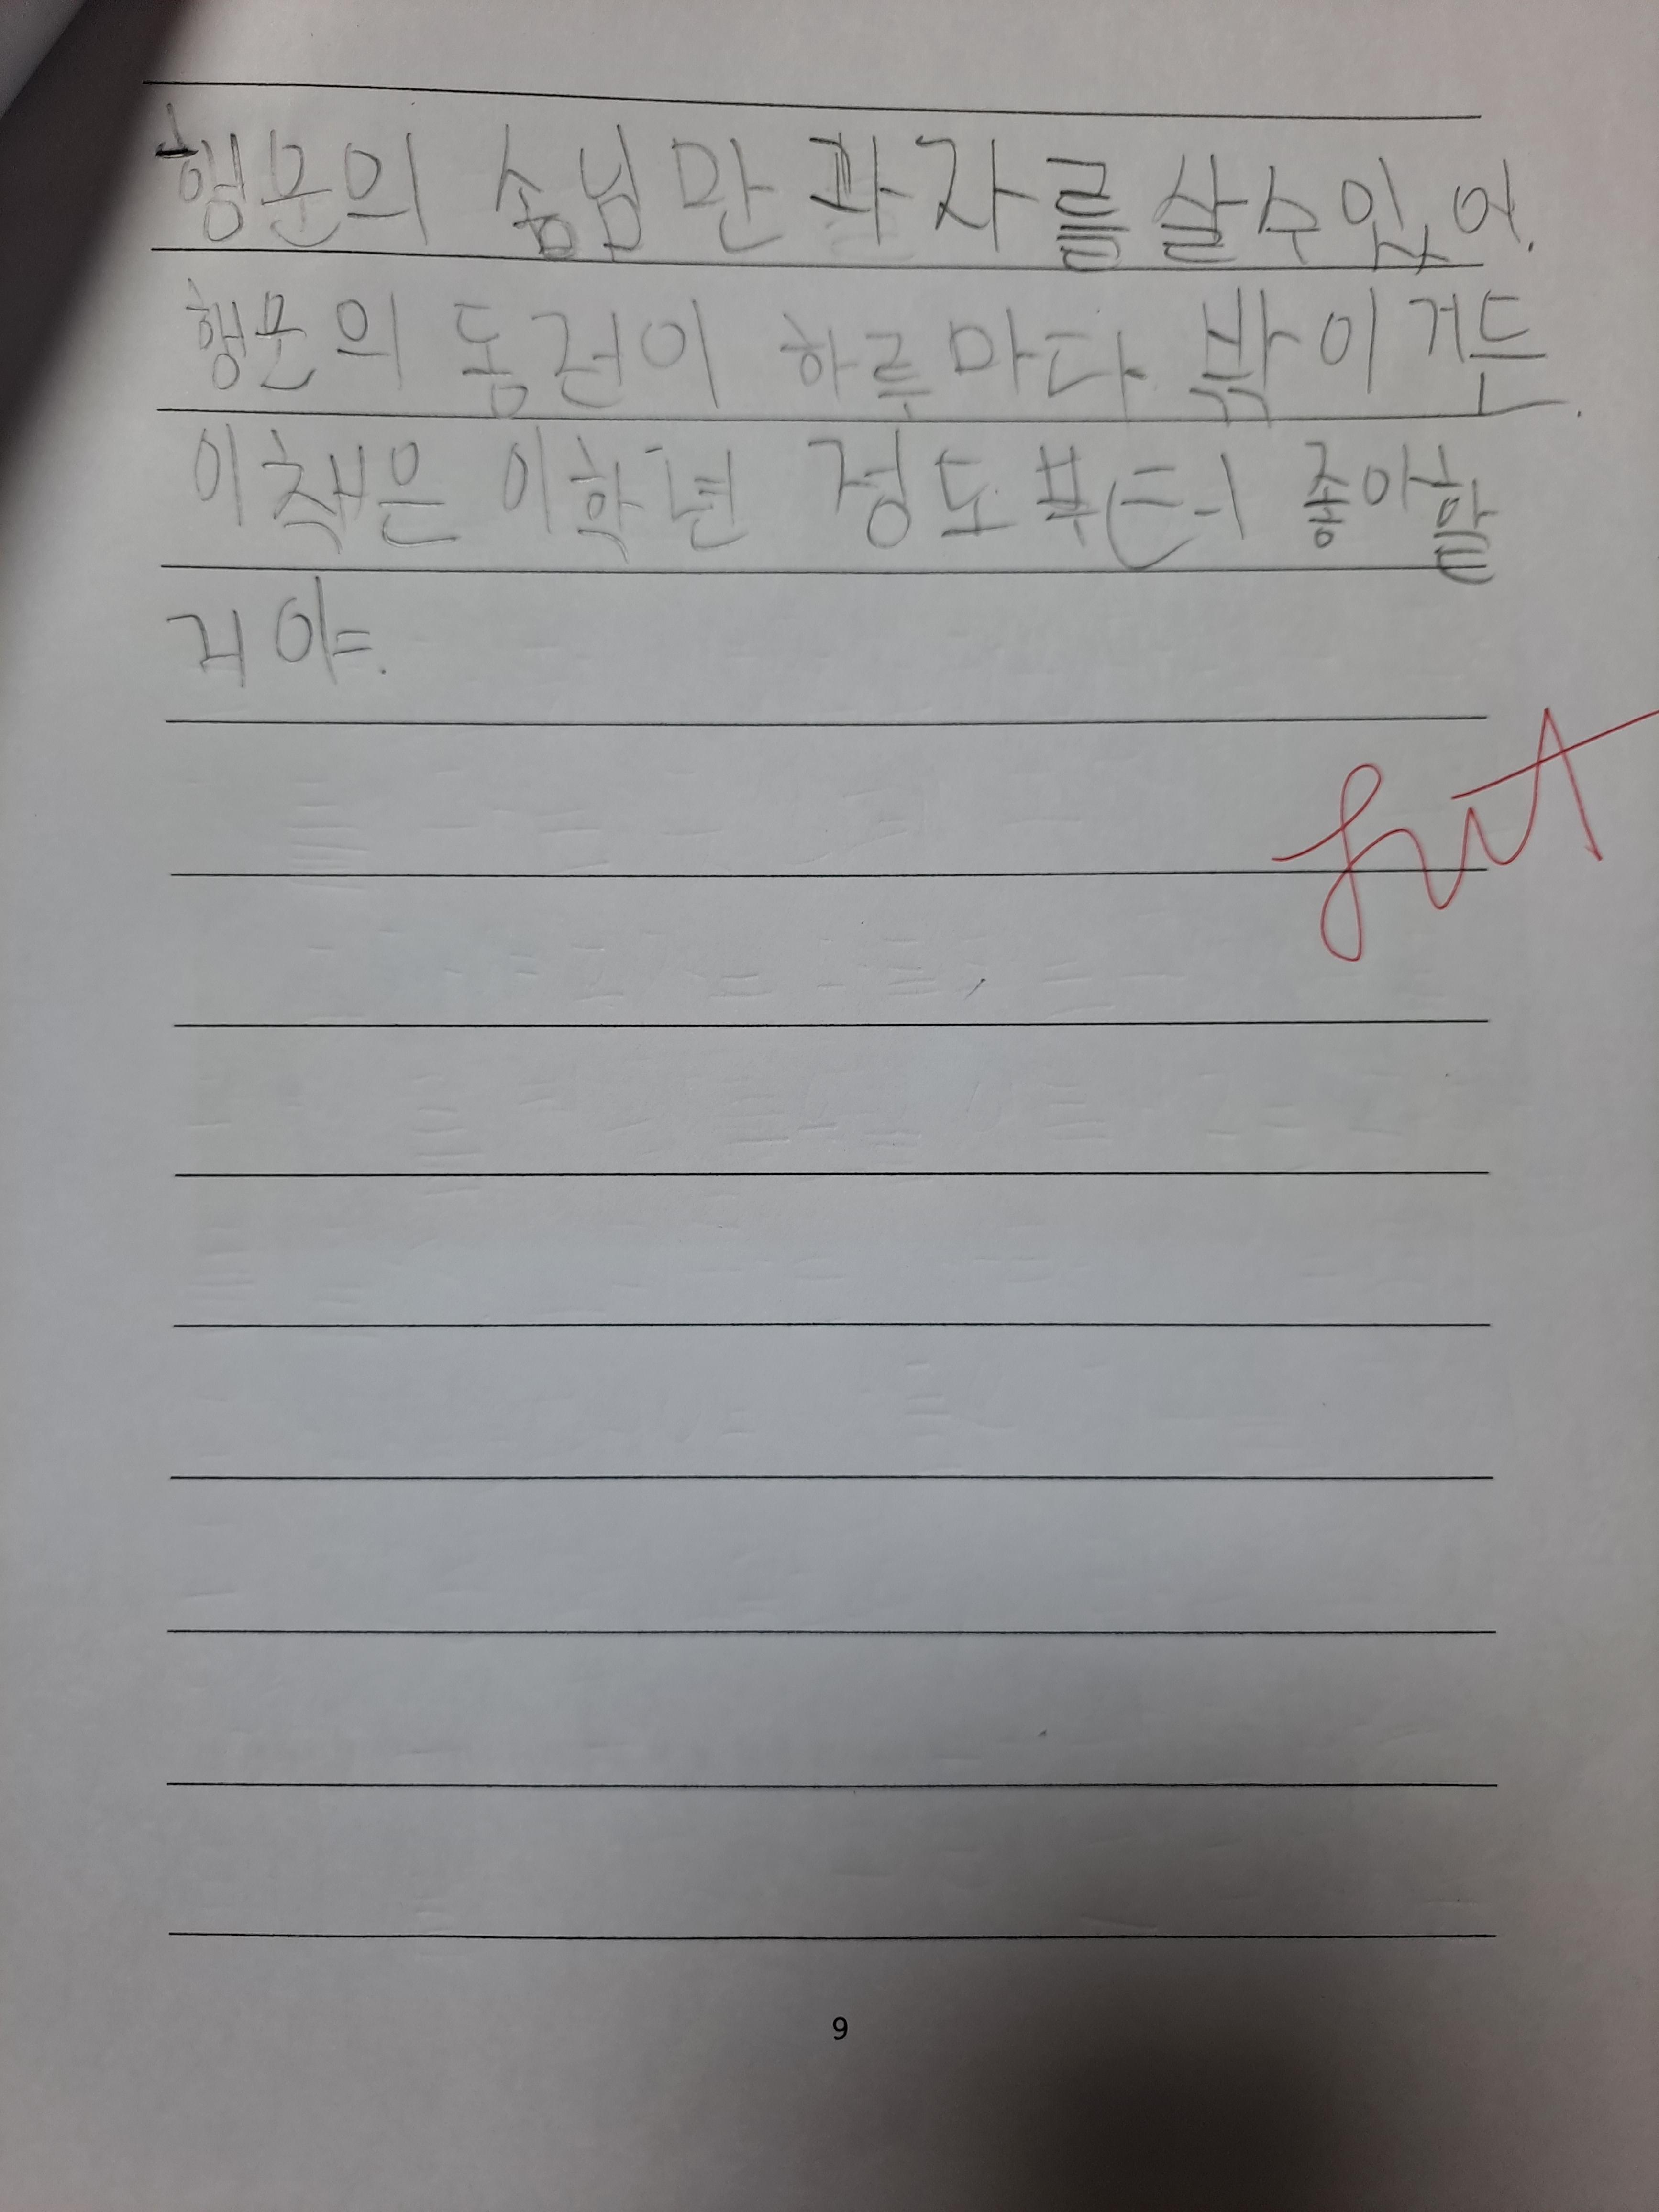 행운의 손님만 과자를 살수있어.
행운의 동전이 하루마다 밖이거든.
이책은 이학년 정도부터 좋아할
거야.
9